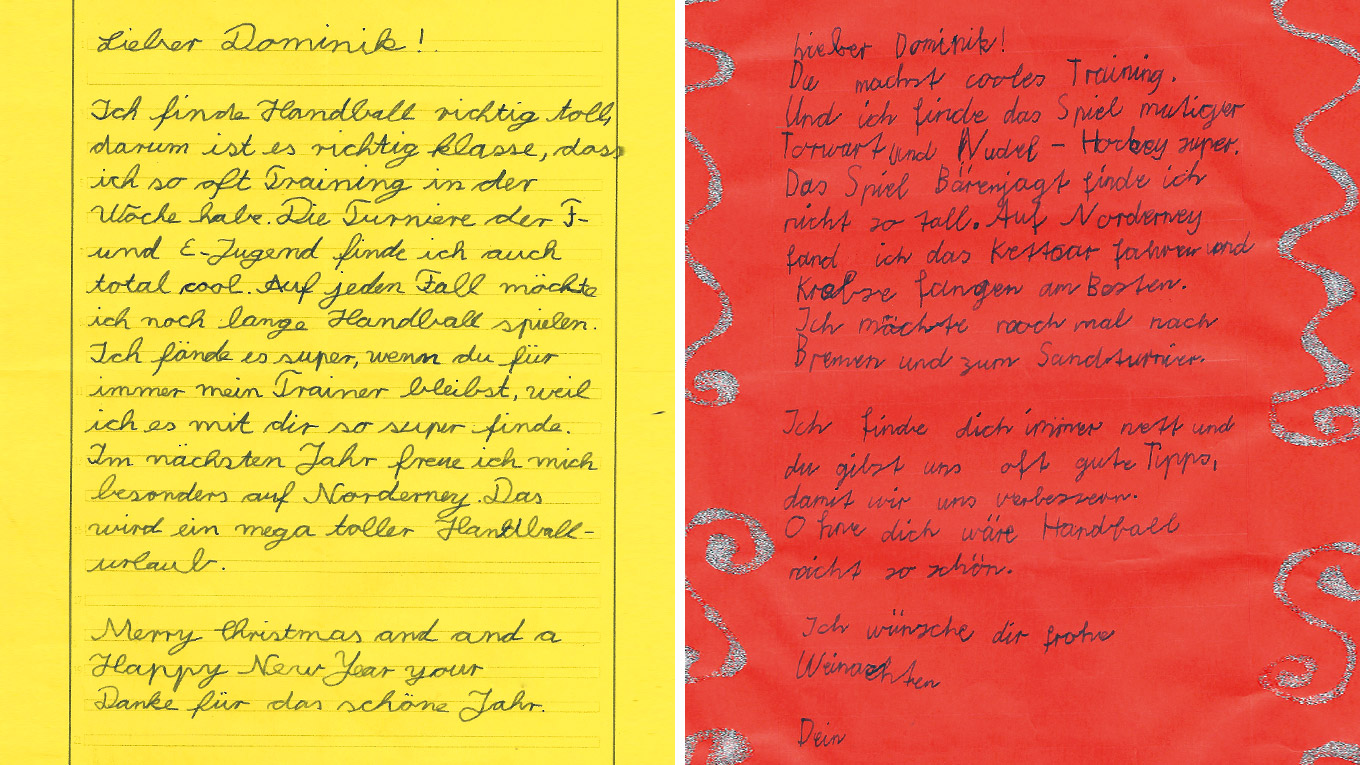 Lieber Dominik!
Ich finde Handball richtig toll,
darum ist es richtig klasse, dass
ich so oft Training in der
Woche habe. Die Turniere der F-
und E-Jugend finde ich auch
total cool. Auf jeden Fall möchte
ich noch lange Handball spielen.
Ich fände es super, wenn du für
immer mein Trainer bleibst, weil
ich es mit dir so super finde.
Im nächsten Jahr freue ich mich
besonders auf Norderney. Das
wird ein mega toller Handball-
urlaub.
Merry Christmas and and a
Happy New Year your
Danke für das schöne Jahr.
Lieber Dominik!
Du machst cooles Training.
Und ich finde das Spiel mutiger
Torwart und Nudel - Hockey super.
Das Spiel Bärenjagt finde ich
nicht so tall. Auf Norderney
fand ich das Kettcar fahren und
Krebse fangen am Besten.
Ich möchte noch mal nach
Bremen und zum Sandturnier.
Ich finde dich immer nett und
du gibst uns oft gute Tipps,
damit wir uns verbessern.
Ohne dich wäre Handball
nicht so schön.
Ich wünsche dir frohe
Weinachten
Dein